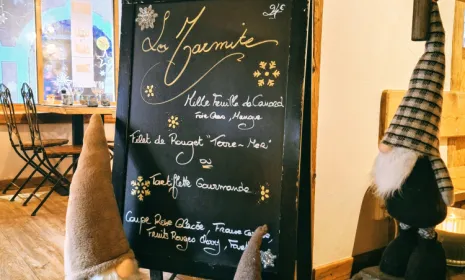 24€
La Marmite
Mille Feuille de Canard
Foie Gras, Mangue
Filet de Rouget "Terre-Mer"
ou
Tartiflette Gourmande
Coupe Rose Glacée, Fraise
Fruits Rouges